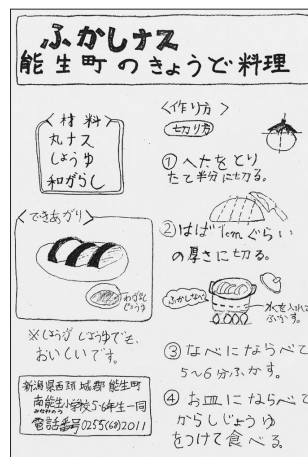 ふかしナス
能生町のきょうど料理
<材料>
丸ナス
しょうゆ
和がらし
<できあがり>
わがらし
じょうゆ
※しょうが じょうゆでも、
おいしいです。
新潟県西頸城郡能生町
南能生小学校5・6年生一同
みなみのう
電話番号0255(68)2011
<作り方>
切り方
①へたをとり
たて半分に切る。
②はば1cmぐらい
の厚さに切る。
ふかしなべ
水を入れて
ふかす。
③なべにならべて
5~6分ふかす。
④お皿にならべて
からしじょうゆ
をつけて食べる。